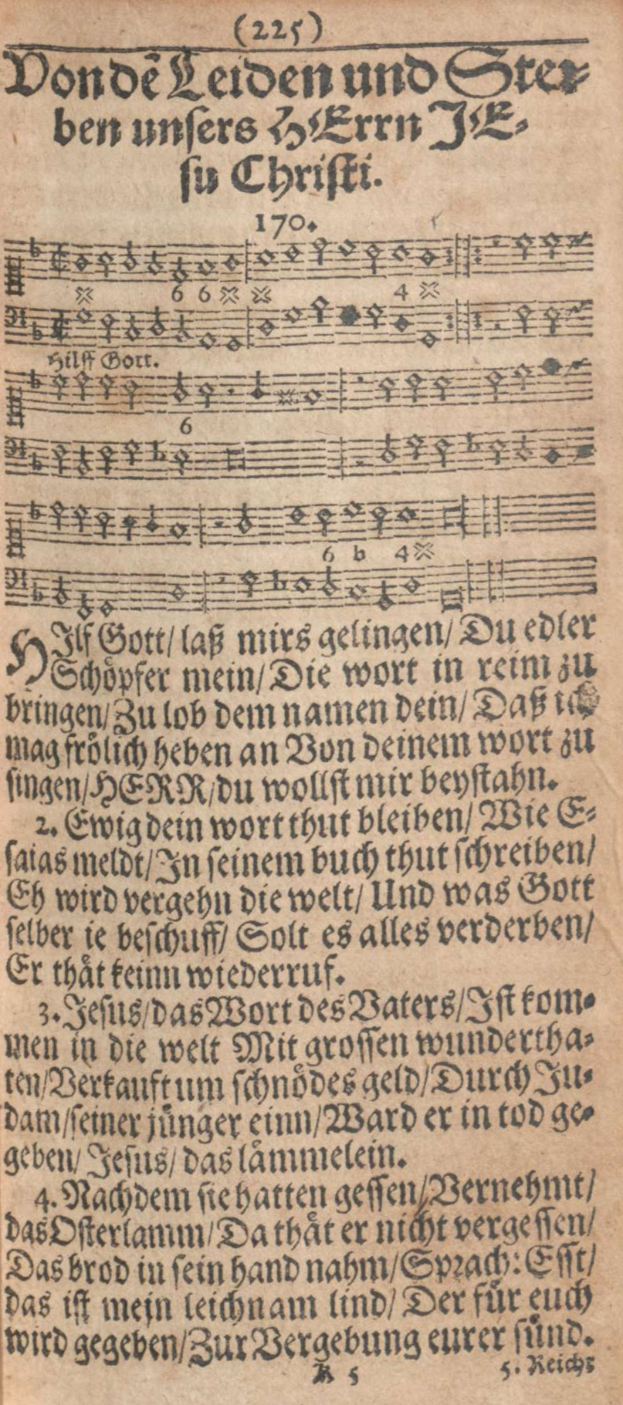 (225)
Von dẽ Leiden und Ster-
ben unsers HErrn JE-
su Christi.
170.
6 6 4
Hilff Gott.
6
6 b 4
HIlf Gott/ laß mirs gelingen/ Du edler
Schöpfer mein/ Die wort in reim zu
bringen/ Zu lob dem namen dein/ Daß ich
mag frölich heben an Von deinem wort zu
singen/ HERR/ du wollst mir beystahn.
2. Ewig dein wort thut bleiben/ Wie E-
saias meldt/ In seinem buch thut schreiben/
Eh wird vergehn die welt/ Und was Gott
selber ie beschuff/ Solt es alles verderben/
Er thät keinn wiederruf.
3. Jesus/ das Wort des Vaters/ Ist kom-
men in die welt Mit grossen wundertha-
ten/ Verkauft um schnödes geld/ Durch Ju-
dam/ seiner jünger einn/ Ward er in tod ge-
geben/ Jesus/ das lämmelein.
4. Nachdem sie hatten gessen/ Vernehmt/
das Osterlamm/ Da thät er nicht vergessen/
Das brod in sein hand nahm/ Sprach: Esst/
das ist mein leichnam lind/ Der für euch
wird gegeben/ Zur Vergebung eurer sünd.
K 5 5. Reicht